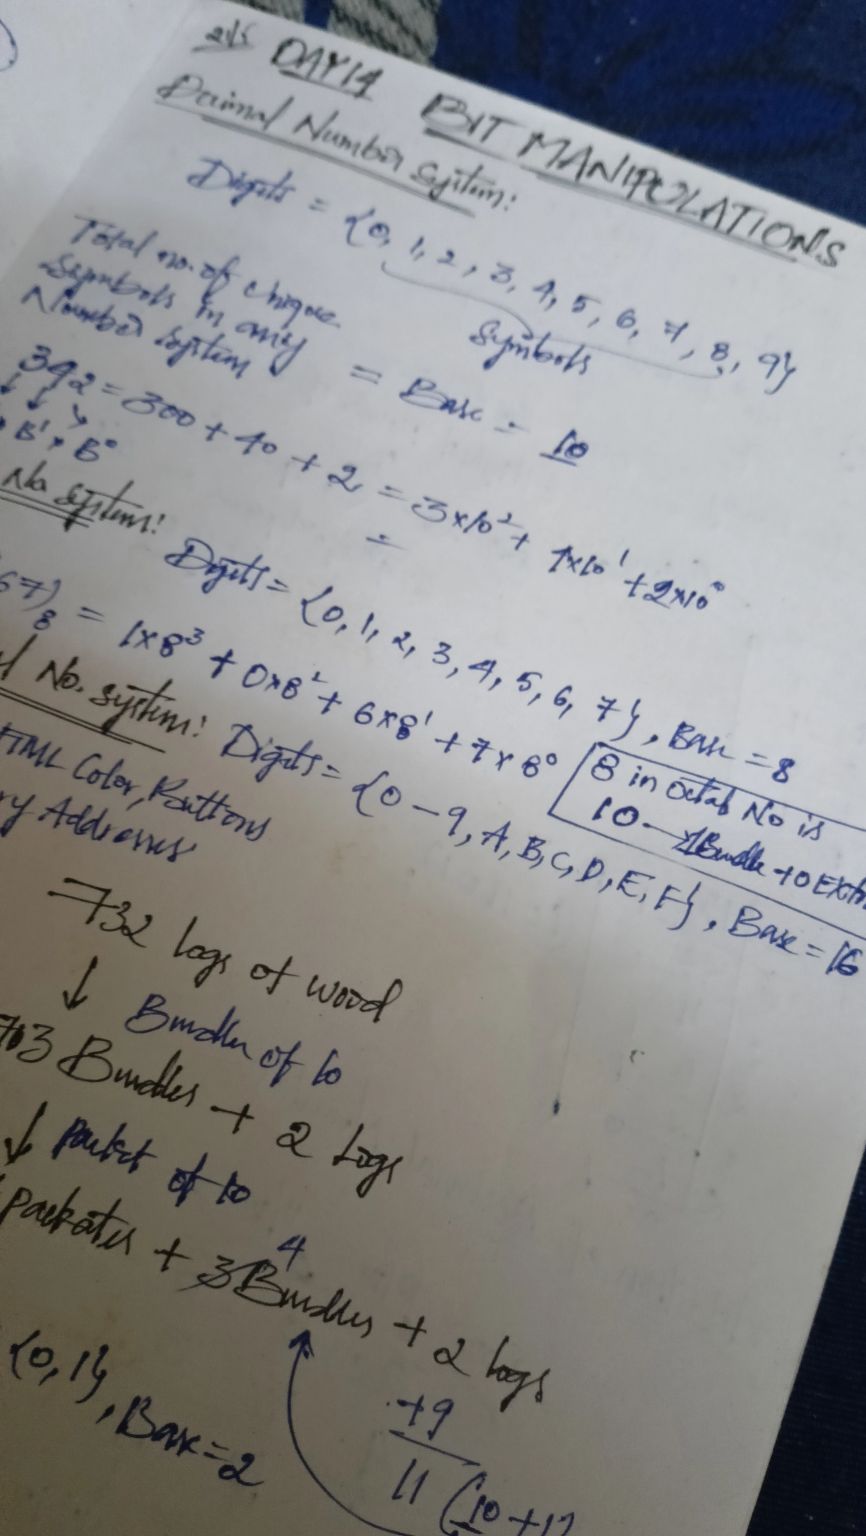 DAY14 BIT MANIPULATIONS
Decimal Number System:
Digits = {0, 1, 2, 3, 4, 5, 6, 7, 8, 9}
Symbols
Total no. of unique
Symbols in any
Number System = Base = 10
392 = 300 + 40 + 2 = 3x10² + 4x10¹ + 2x10⁰
B¹ B⁰
No. System: Digits = {0, 1, 2, 3, 4, 5, 6, 7}, Base = 8
67)₈ = 1x8³ + 0x8² + 6x8¹ + 7x8⁰
8 in Octal No is
10 → 1Bundle + 0 Extra
No. System: Digits = {0 - 9, A, B, C, D, E, F}, Base = 16
HTML Color, Buttons
Addresses
732 logs of wood
↓ Bundle of 10
73 Bundles + 2 Logs
↓ Packet of 10
Packates + 3 Bundles + 2 logs
4
+9
11 (10+1)
{0, 1}, Base = 2